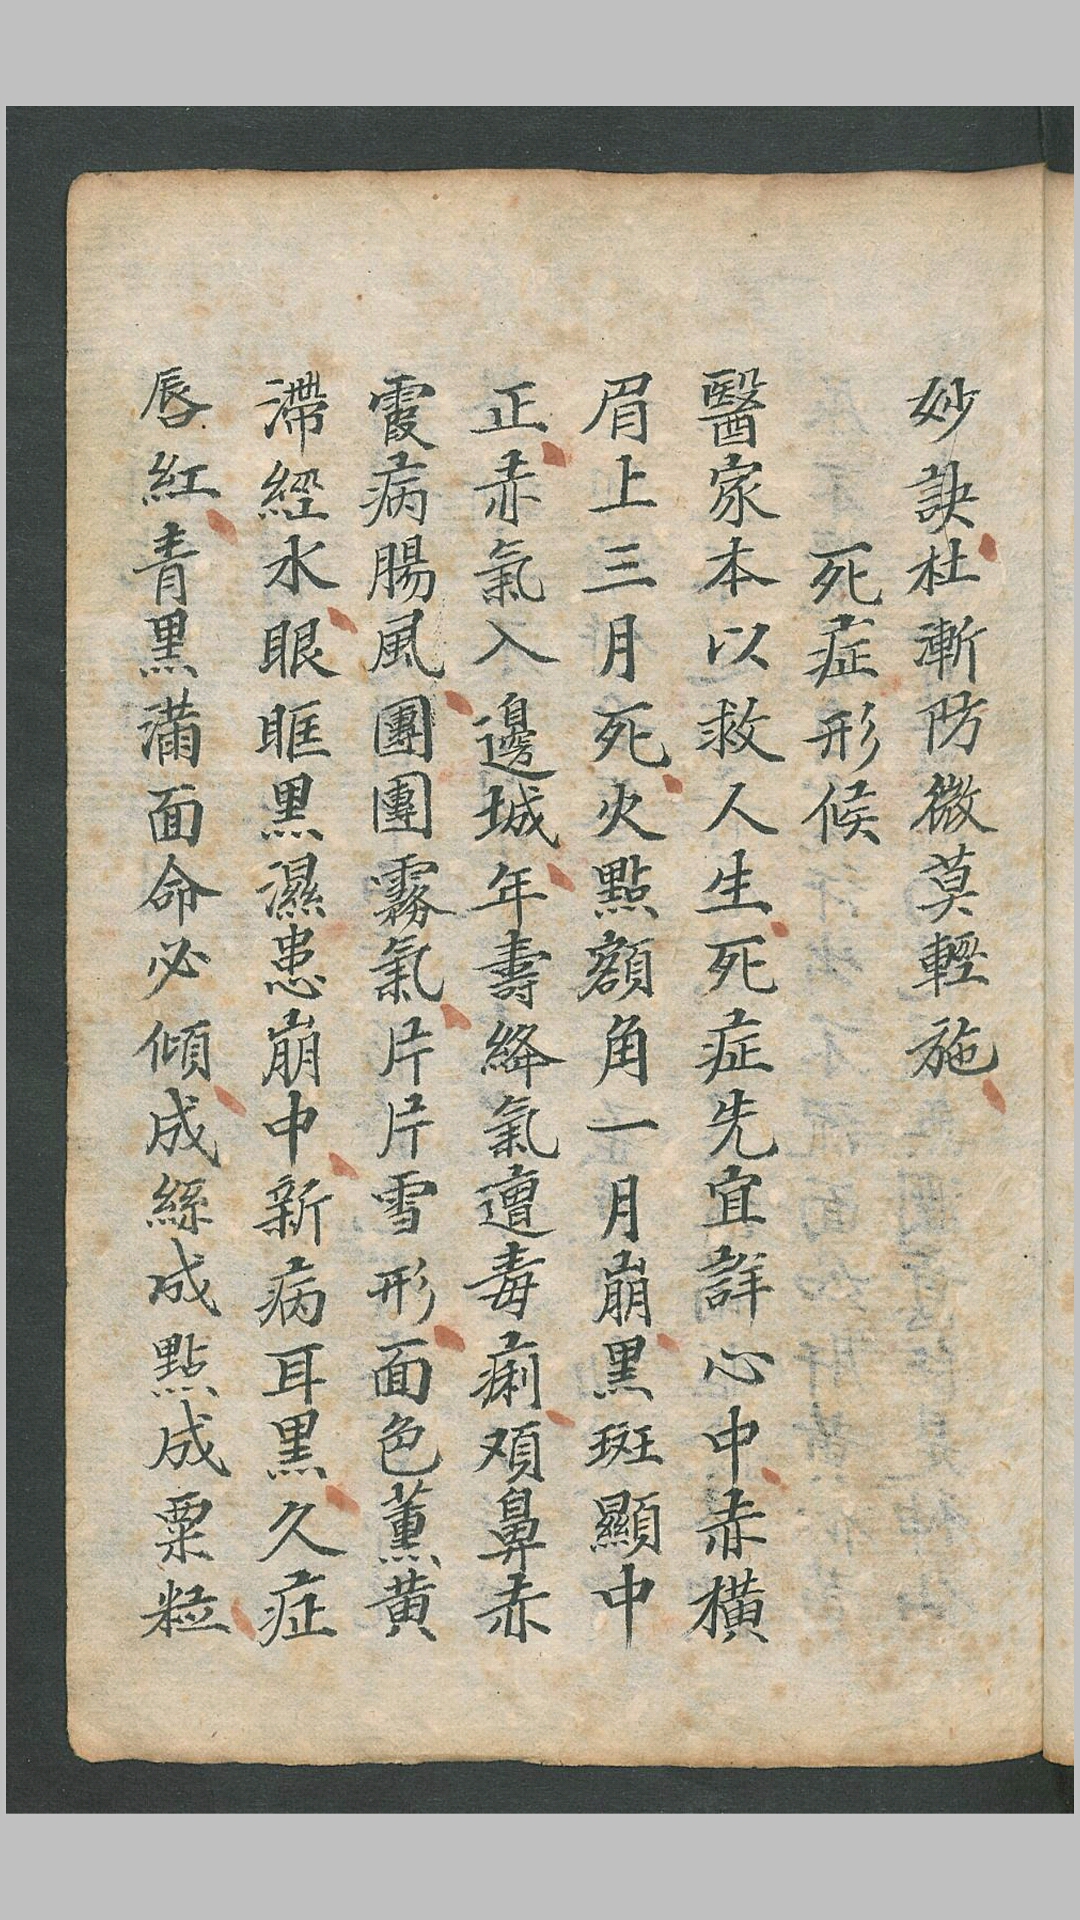 妙訣杜漸防微莫輕施
死症形候
醫家本以救人生死症先宜詳心中赤橫
眉上三月死火點額角一月崩黑斑顯中
正赤氣入邊城年壽絳氣遭毒痢頄鼻赤
霞病腸風團團霧氣片片雪形面色薰黃
滯經水眼眶黑濕患崩中新病耳黑久症
唇紅青黑滿面命必傾成絲成點成粟粒